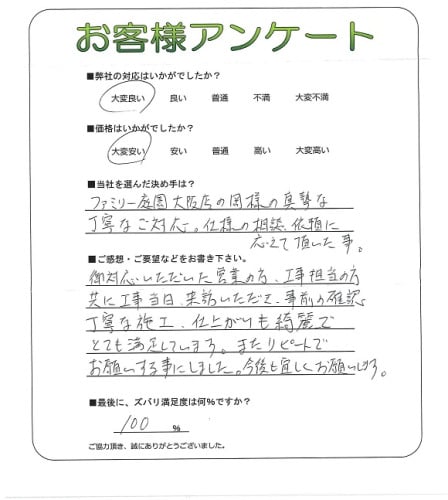 お客様アンケート
■弊社の対応はいかがでしたか？
大変良い 良い 普通 不満 大変不満
■価格はいかがでしたか？
大変安い 安い 普通 高い 大変高い
■当社を選んだ決め手は？
ファミリー庭園大阪店の岡様の真摯な
丁寧なご対応。仕様の相談、依頼に
応えて頂いた事。
■ご感想・ご要望などをお書き下さい。
御対応いただいた営業の方、工事担当の方
共に工事当日、来訪いただき、事前の確認、
丁寧な施工、仕上がりも綺麗で
とても満足してします。またリピートで
お願いする事にしました。今後も宜しくお願いします。
■最後に、ズバリ満足度は何%ですか？
100 %
ご協力頂き、誠にありがとうございました。